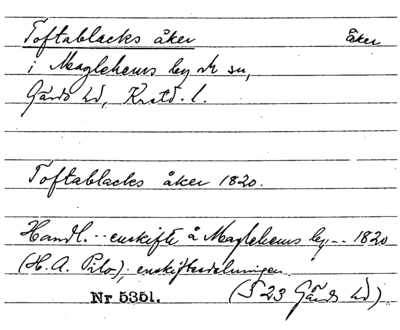 Toftablacks åker åker
i Maglehems by ok sn,
Gärds hd, Krstd. l.
Toftablacks åker 1820.
Handl. .. enskifte å Maglehems by... 1820
(H. A. Pilo), enskiftesdelningen.
Nr 5351. (§ 23 Gärds hd).